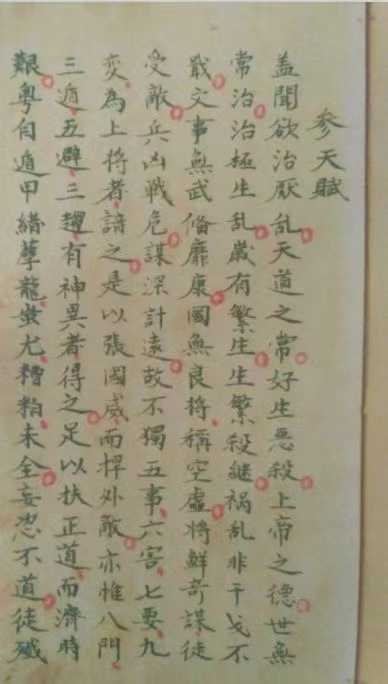 參天賦
蓋聞欲治厭乱天道之常好生惡殺上帝之德世無
常治治極生乱嵗有繁生生繁殺継禍乱非干戈不
戢文事無武俻靡康國無良将稱空虛将鮮竒謀徒
受敵兵凶戦危謀深計遠故不獨五事六害七要九
変為上将者諳之是以張国威而捍外敵亦惟八門
三遁五避三趨有神異者得之足以扶正道而濟時
艱粤自遁甲緒孽龍蚩尤糟粕未全妄恣不道徒殱